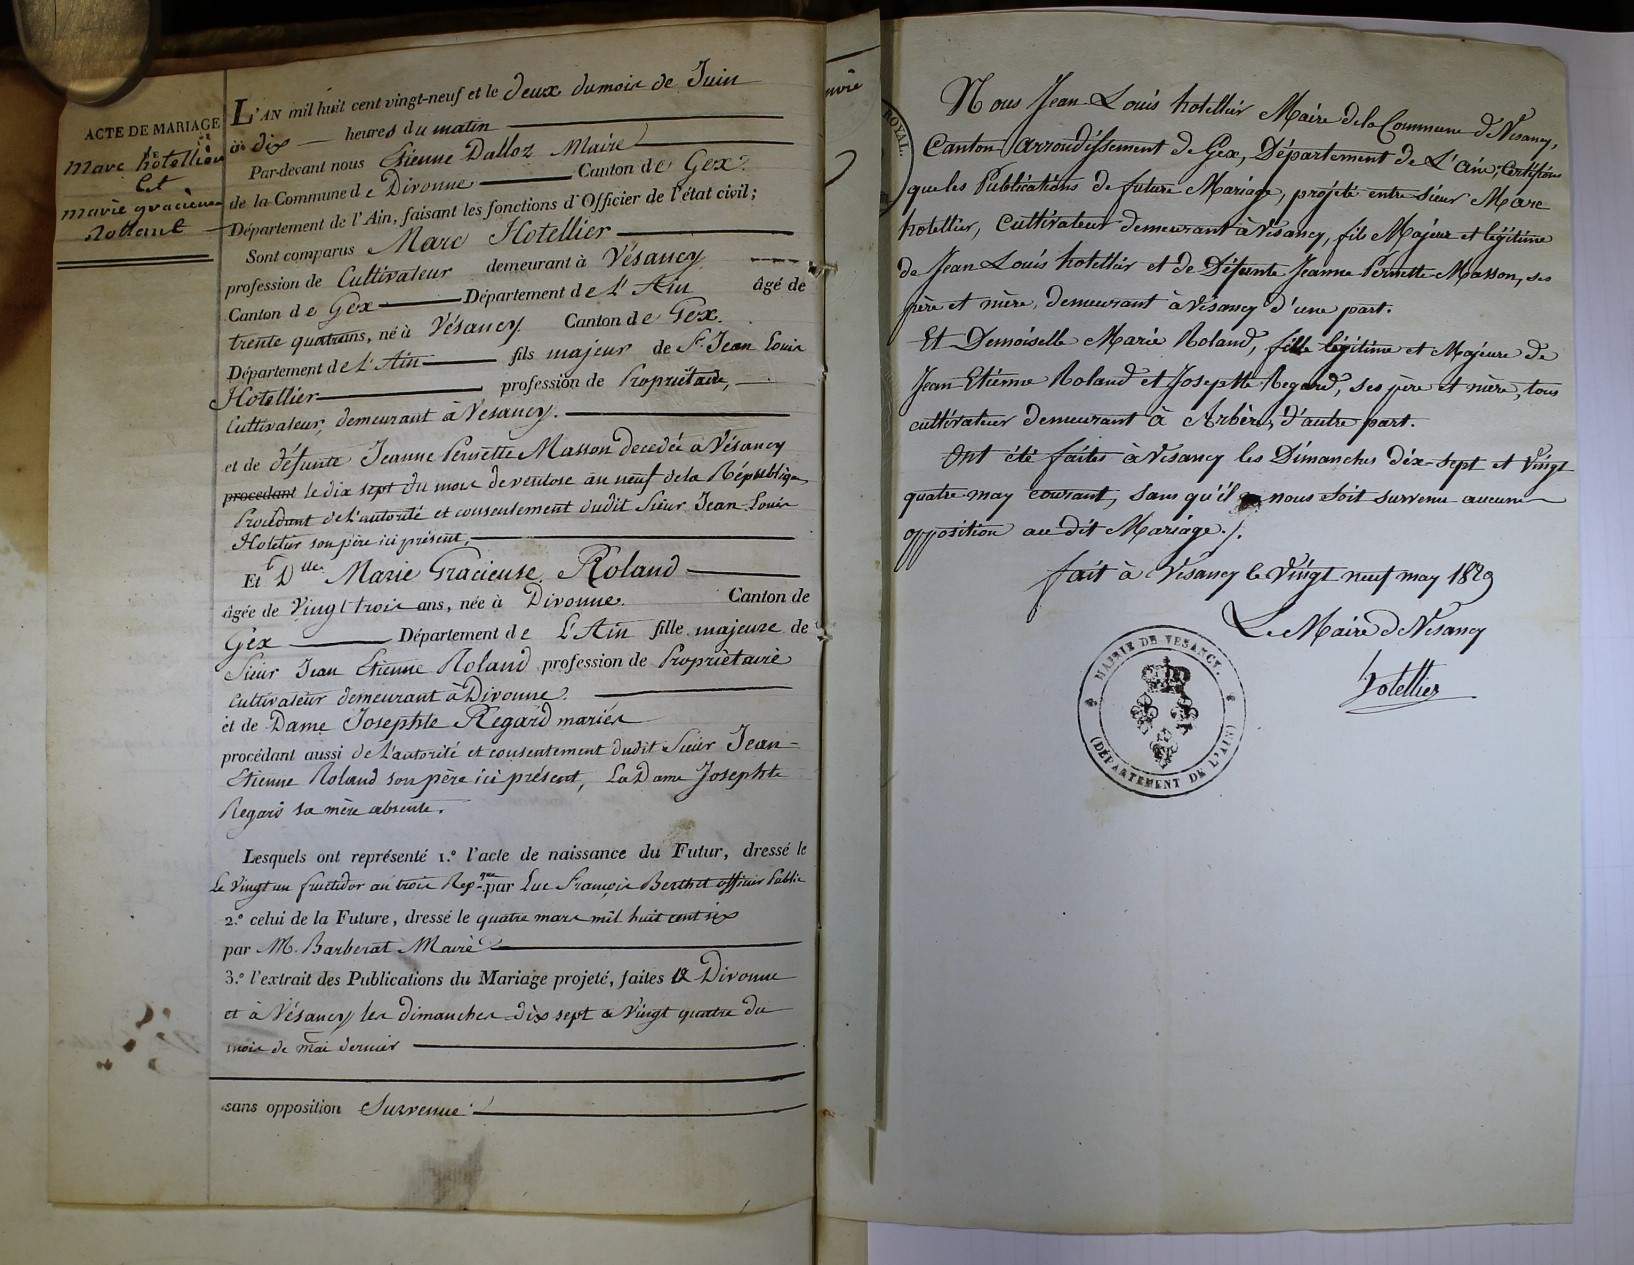 ACTE DE MARIAGE
DE
Marc hotellier
Et
marie gracieuse
Rolland
L'AN mil huit cent vingt-neuf et le deux du mois de Juin
à dix heures du matin
Par-devant nous Etienne Dalloz Maire
de la Commune de Divonne Canton de Gex
Département de l'Ain, faisant les fonctions d'Officier de l'état civil;
Sont comparus Marc Hotellier
profession de Cultivateur demeurant à Vésancy
Canton de Gex Département de L'Ain âgé de
trente quatre ans, né à Vésancy Canton de Gex.
Département de L'Ain fils majeur de Sr. Jean Louis
Hotellier profession de Propriétaire,
Cultivateur, demeurant à Vesancy.
et de défunte Jeanne Pernette Masson decedée à Vésancy
procédant le dix sept du mois de ventose an neuf de la République
Procédant de L'autorité et consentement dudit Sieur Jean Louis
Hotelier son père ici présent,
Et Dlle Marie Gracieuse Roland
âgée de Vingt trois ans, née à Divonne. Canton de
Gex Département de L'Ain fille majeure de
Sieur Jean Etienne Roland profession de Propriétaire
Cultivateur demeurant à Divonne.
et de Dame Josephte Regard mariés
procédant aussi de L'autorité et consentement dudit Sieur Jean-
Etienne Roland son père ici présent, La Dame Josephte
Regard sa mère absente.
Lesquels ont représenté 1.° l'acte de naissance du Futur, dressé le
Le Vingt un fructidor an trois Rep.que par Luc François Berthet officier Public
2.° celui de la Future, dressé le quatre mars mil huit cent six
par M. Barberat Maire
3.° l'extrait des Publications du Mariage projeté, faites à Divonne
et à Vésancy les dimanches dix sept & Vingt quatre du
mois de mai dernier
sans opposition Survenue.
ROYAL.
Nous Jean Louis hotellier Maire de la Commune de Vesancy,
Canton, arrondissement de Gex, Département de L'ain, Certifions
que les Publications de future Mariage, projeté entre sieur Marc
hotellier, Cultivateur demeurant à Vésancy, fils Majeur et légitime
de Jean Louis hotellier et de Défunte Jeanne Pernette Masson, ses
père et mère, demeurant à Vésancy d'une part.
Et Demoiselle Marie Roland, fille légitime et Majeure de
Jean Etienne Roland et Josephte Regard, ses père et mère, tous
cultivateur demeurant à Arbère, d'autre part.
Ont été faites à Vesancy les Dimanches dix-sept et Vingt
quatre may courant, sans qu'il nous soit survenu aucune
opposition au dit Mariage./.
fait à Vésancy le Vingt neuf may 1829
Le Maire de Vesancy
hotellier
MAIRIE DE VESANCY.
(DÉPARTEMENT DE L'AIN)